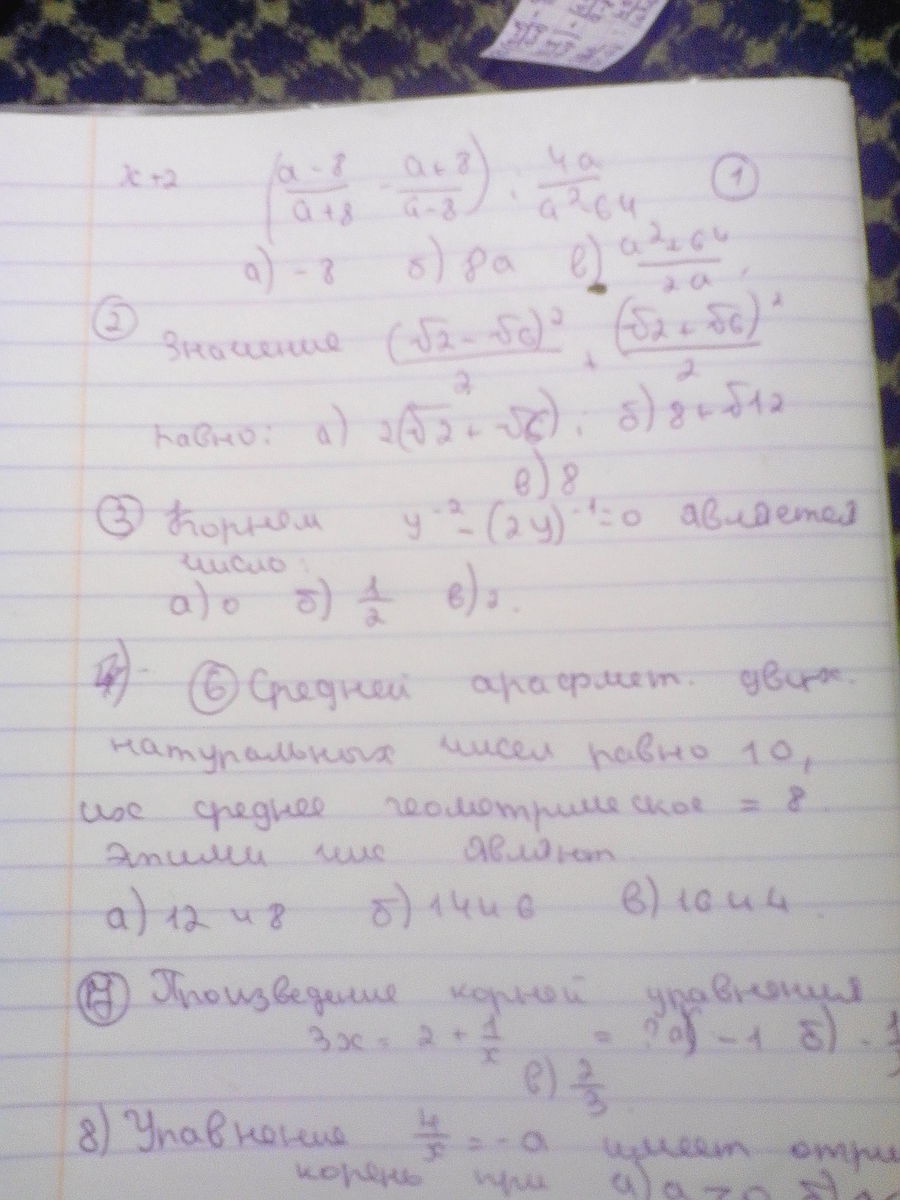 x+2 (a-8/a+8 - a+8/a-8) : 4a/a²-64 ①
а) -8 б) 8a в) a²+64/2a,
② Значение (√2-√6)²/2 + (√2+√6)²/2
равно: а) 2(√2+√6); б) 8+√12
в) 8
③ Корнем y⁻² - (2y)⁻¹ = 0 является
число:
а) 0 б) 1/2 в) 2.
4) - ⑥ Средней арифмет. двух
натуральных чисел равно 10,
их среднее геометрическое = 8
этими чис являют
а) 12 и 8 б) 14 и 6 в) 16 и 4.
⑦ Произведение корней уравнения
3x = 2 + 1/x = ? а) -1 б) -1
в) 2/3.
8) Уравнение = -a имеет
корень при а) a